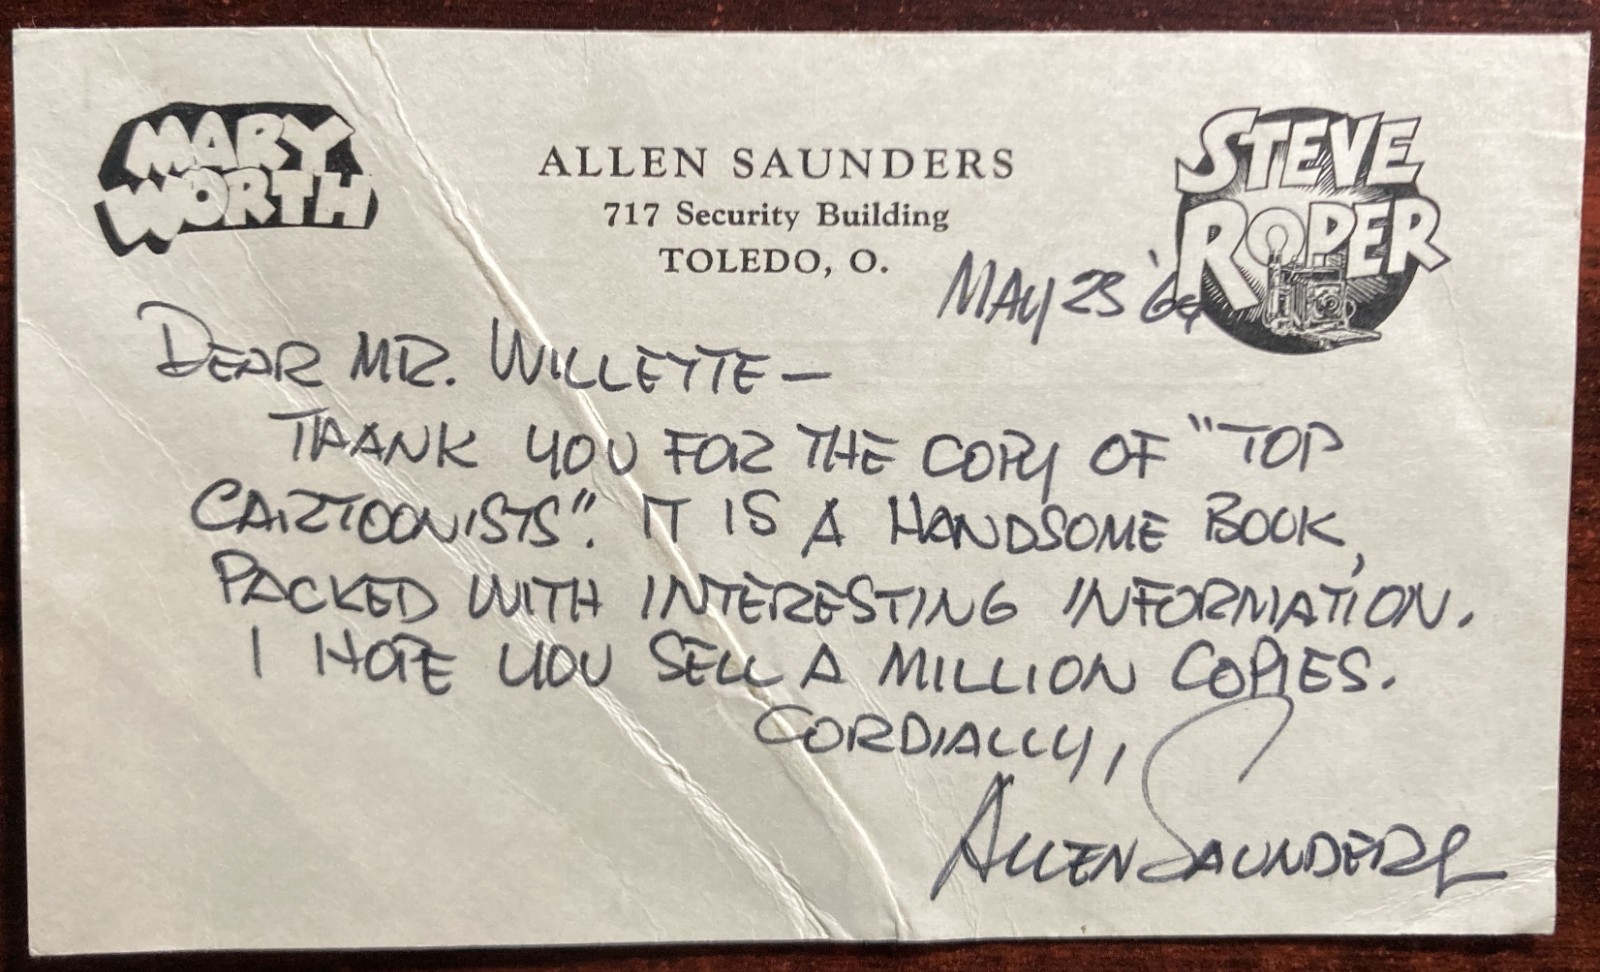 MARY
WORTH
STEVE
ROPER
ALLEN SAUNDERS
717 Security Building
TOLEDO, O.
MAY 23
DEAR MR. WILLETTE —
THANK YOU FOR THE COPY OF "TOP
CARTOONISTS". IT IS A HANDSOME BOOK,
PACKED WITH INTERESTING INFORMATION.
I HOPE YOU SELL A MILLION COPIES.
CORDIALLY,
ALLEN SAUNDERS